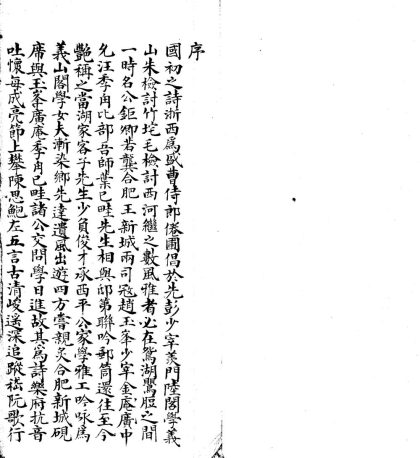 序
國初之詩浙西爲盛曹侍郎倦圃倡於先彭少宰羨門陸閣學義
山朱檢討竹垞毛檢討西河繼之數風雅者必在鴛湖鸎脰之間
一時名公鉅卿若龔合肥王新城兩司寇趙玉峯少宰金庵廣中
允汪季甪比部吾師葉已畦先生相與邸第聯吟郵筒還往至今
艷稱之當湖家客子先生少負俊才承西平公家學雅工吟咏爲
義山閣學女夫漸染鄉先達遺風出遊四方嘗親炙合肥新城硯
席與玉峯廣庵季甪已畦諸公交問學日進故其爲詩樂府抗音
吐懷每成亮節上攀陳思鮑左五言古清峻遙深追蹤嵇阮歌行